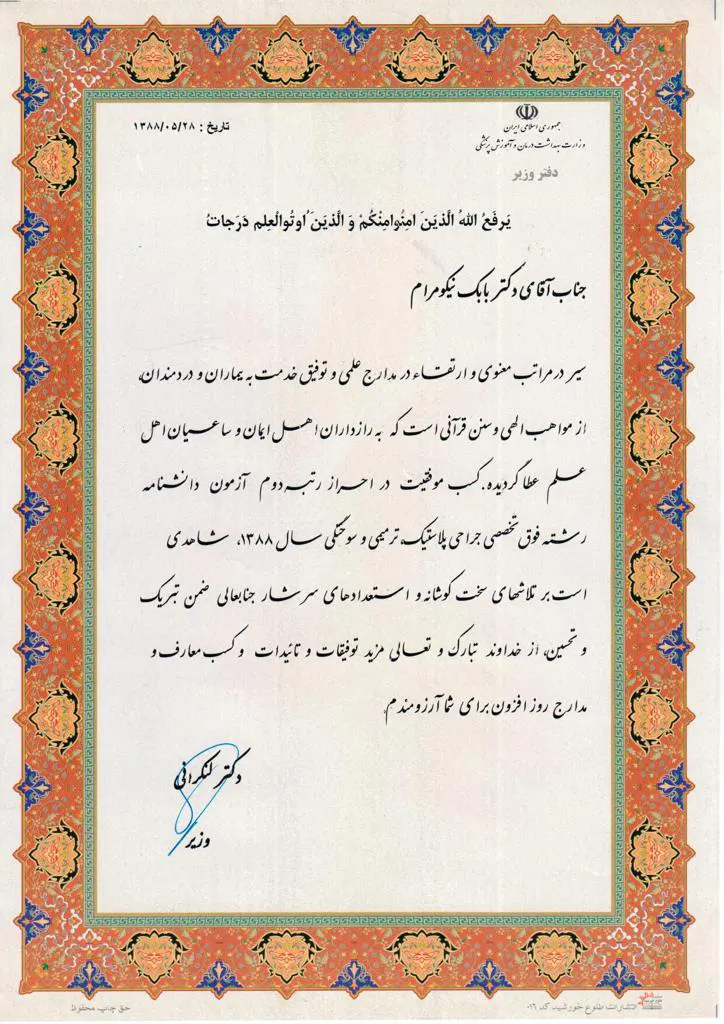 جمهوری اسلامی ایران
تاریخ : ۱۳۸۸/۰۵/۲۸
وزارت بهداشت درمان و آموزش پزشکی
دفتر وزیر
يَرفَعُ اللهُ الَّذينَ امِنُوامِنْكُمْ وَ الَّذينَ اُوتُوالْعِلم دَرَجاتُ
جناب آقای دکتر بابک نیکومرام
سیر در مراتب معنوی و ارتقاء در مدارج علمی و توفیق خدمت به بیماران و دردمندان،
از مواهب الهی و سنن قرآنی است که به رازداران اهل ایمان و ساعیان اهل
علم عطا گردیده. کسب موفقیت در احراز رتبه دوم آزمون دانشنامه
رشته فوق تخصصی جراحی پلاستیک، ترمیمی و سوختگی سال ۱۳۸۸، شاهدی
است بر تلاشهای سخت کوشانه و استعدادهای سرشار جنابعالی ضمن تبریک
و تحسین، از خداوند تبارک و تعالی مزید توفیقات و تائیدات و کسب معارف و
مدارج روز افزون برای شما آرزومندم.
دکتر لنکرانی
وزیر
انتشارات طلوع خورشید کد ۰۱۶
حق چاپ محفوظ